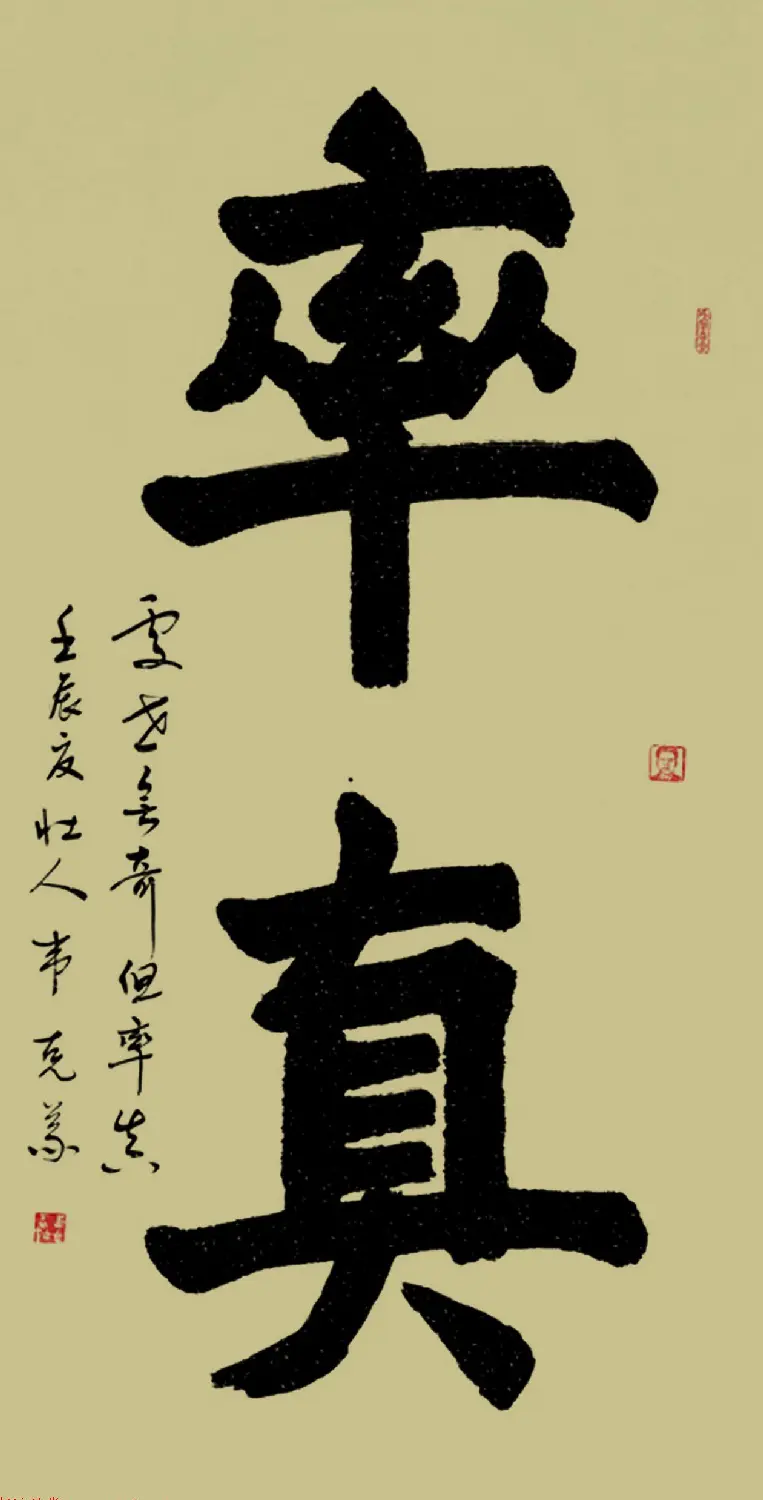 率真
处世无奇但率真
壬辰夏壮人韦克义